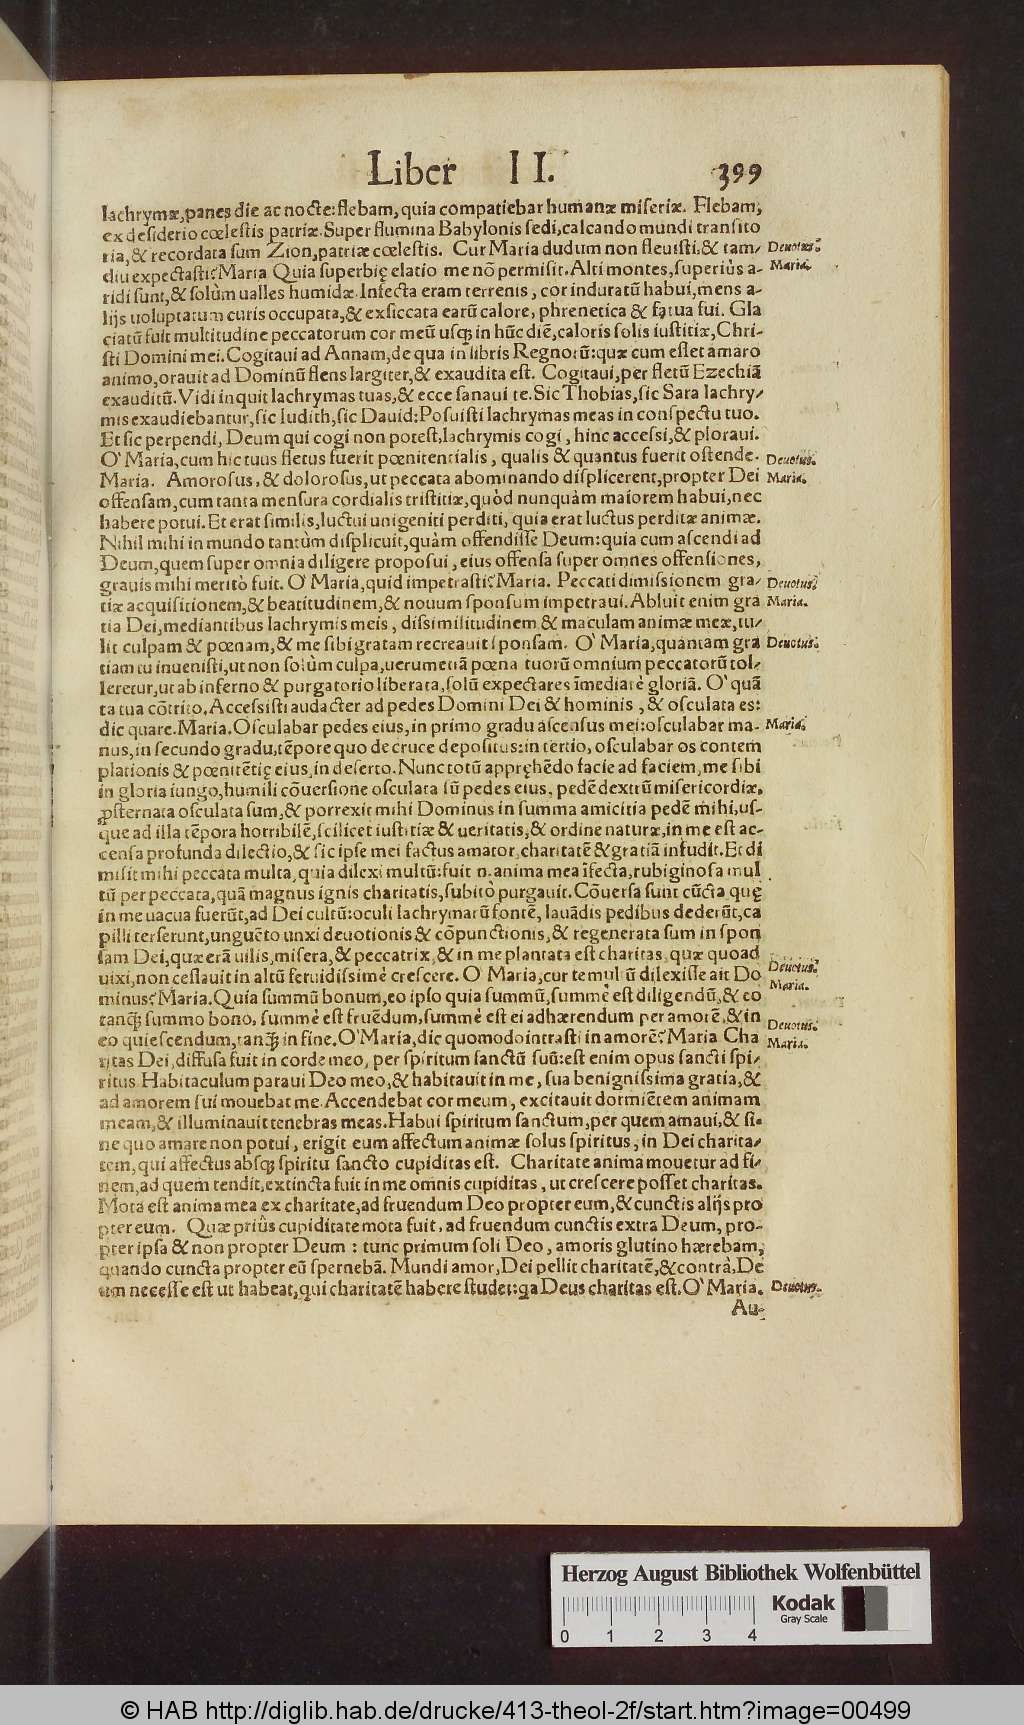 Liber II. 399
lachrymæ, panes die ac nocte: flebam, quia compatiebar humanæ miseriæ. Flebam,
ex desiderio cœlestis patriæ. Super flumina Babylonis sedi, calcando mundi transito
ria, & recordata sum Zion, patriæ cœlestis. Cur Maria dudum non fleuisti, & tam- Deuotus.
diu expectasti? Maria Quia superbię elatio me nō permisit. Alti montes, superiùs a- Maria.
ridi sunt, & solùm ualles humidæ. Infecta eram terrenis, cor induratū habui, mens a-
lijs uoluptatum curis occupata, & exsiccata earū calore, phrenetica & fatua fui. Gla
ciatū fuit multitudine peccatorum cor meū usq; in hūc diē, caloris solis iustitiæ, Chri-
sti Domini mei. Cogitaui ad Annam, de qua in libris Regnorū: quæ cum esset amaro
animo, orauit ad Dominū flens largiter, & exaudita est. Cogitaui, per fletū Ezechiā
exauditū. Vidi inquit lachrymas tuas, & ecce sanaui te. Sic Thobias, sic Sara lachry-
mis exaudiebantur, sic Iudith, sic Dauid: Posuisti lachrymas meas in conspectu tuo.
Et sic perpendi, Deum qui cogi non potest, lachrymis cogi, hinc accessi, & ploraui.
O' Maria, cum hic tuus fletus fuerit pœnitentialis, qualis & quantus fuerit ostende. Deuotus.
Maria. Amorosus, & dolorosus, ut peccata abominando displicerent, propter Dei Maria.
offensam, cum tanta mensura cordialis tristitiæ, quòd nunquàm maiorem habui, nec
habere potui. Et erat similis, luctui unigeniti perditi, quia erat luctus perditæ animæ.
Nihil mihi in mundo tantùm displicuit, quàm offendisse Deum: quia cum ascendi ad
Deum, quem super omnia diligere proposui, eius offensa super omnes offensiones,
grauis mihi meritò fuit. O' Maria, quid impetrasti? Maria. Peccati dimissionem gra- Deuotus.
tiæ acquisitionem, & beatitudinem, & nouum sponsum impetraui. Abluit enim gra Maria.
tia Dei, mediantibus lachrymis meis, dissimilitudinem & maculam animæ meæ, tu-
lit culpam & pœnam, & me sibi gratam recreauit sponsam. O' Maria, quantam gra Deuotus.
tiam tu inuenisti, ut non solùm culpa, uerumetiā pœna tuorū omnium peccatorū tol-
leretur, ut ab inferno & purgatorio liberata, solū expectares īmediatè gloriā. O' quā
ta tua cōtritio. Accessisti audacter ad pedes Domini Dei & hominis, & osculata es:
dic quare. Maria. Osculabar pedes eius, in primo gradu ascensus mei: osculabar ma- Maria.
nus, in secundo gradu, tēpore quo de cruce depositus: in tertio, osculabar os contem
plationis & pœnitētię eius, in deserto. Nunc totū appręhēdo facie ad faciem, me sibi
in gloria iungo, humili cōuersione osculata sū pedes eius, pedē dextrū misericordiæ.
ꝓsternata osculata sum, & porrexit mihi Dominus in summa amicitia pedē mihi, us-
que ad illa tēpora horribilē, scilicet iustitiæ & ueritatis, & ordine naturæ, in me est ac-
censa profunda dilectio, & sic ipse mei factus amator, charitatē & gratiā infudit. Et di
misit mihi peccata multa, quia dilexi multū: fuit n. anima mea īfecta, rubiginosa mul
tū per peccata, quā magnus ignis charitatis, subitò purgauit. Cōuersa sunt cūcta quę
in me uacua fuerūt, ad Dei cultū: oculi lachrymarū fontē, lauādis pedibus dederūt, ca
pilli terserunt, unguēto unxi deuotionis & cōpunctionis, & regenerata sum in spon
sam Dei, quæ erā uilis, misera, & peccatrix, & in me plantata est charitas, quæ quoad
uixi, non cessauit in altū feruidissimè crescere. O Maria, cur te multū dilexisse ait Do Deuotus.
minus? Maria. Quia summū bonum, eo ipso quia summū, summè est diligendū, & eo Maria.
tanq̃ summo bono, summè est fruēdum, summè est ei adhærendum per amorē, & in Deuotus.
eo quiescendum, tanq̃ in fine. O' Maria, dic quomodo intrasti in amorē? Maria Cha Maria.
ritas Dei, diffusa fuit in corde meo, per spiritum sanctū suū: est enim opus sancti spi-
ritus Habitaculum paraui Deo meo, & habitauit in me, sua benignissima gratia, &
ad amorem sui mouebat me. Accendebat cor meum, excitauit dormiētem animam
meam, & illuminauit tenebras meas. Habui spiritum sanctum, per quem amaui, & si-
ne quo amare non potui, erigit eum affectum animæ solus spiritus, in Dei charita-
tem, qui affectus absq; spiritu sancto cupiditas est. Charitate anima mouetur ad fi-
nem, ad quem tendit, extincta fuit in me omnis cupiditas, ut crescere posset charitas.
Mota est anima mea ex charitate, ad fruendum Deo propter eum, & cunctis alijs pro
pter eum. Quæ priùs cupiditate mota fuit, ad fruendum cunctis extra Deum, pro-
pter ipsa & non propter Deum: tunc primum soli Deo, amoris glutino hærebam,
quando cuncta propter eū spernebā. Mundi amor, Dei pellit charitatē, & contrà, De
um necesse est ut habeat, qui charitatē habere studet: qa Deus charitas est. O' Maria. Deuotus.
Au-
Herzog August Bibliothek Wolfenbüttel
0 1 2 3 4
Kodak
Gray Scale
© HAB http://diglib.hab.de/drucke/413-theol-2f/start.htm?image=00499